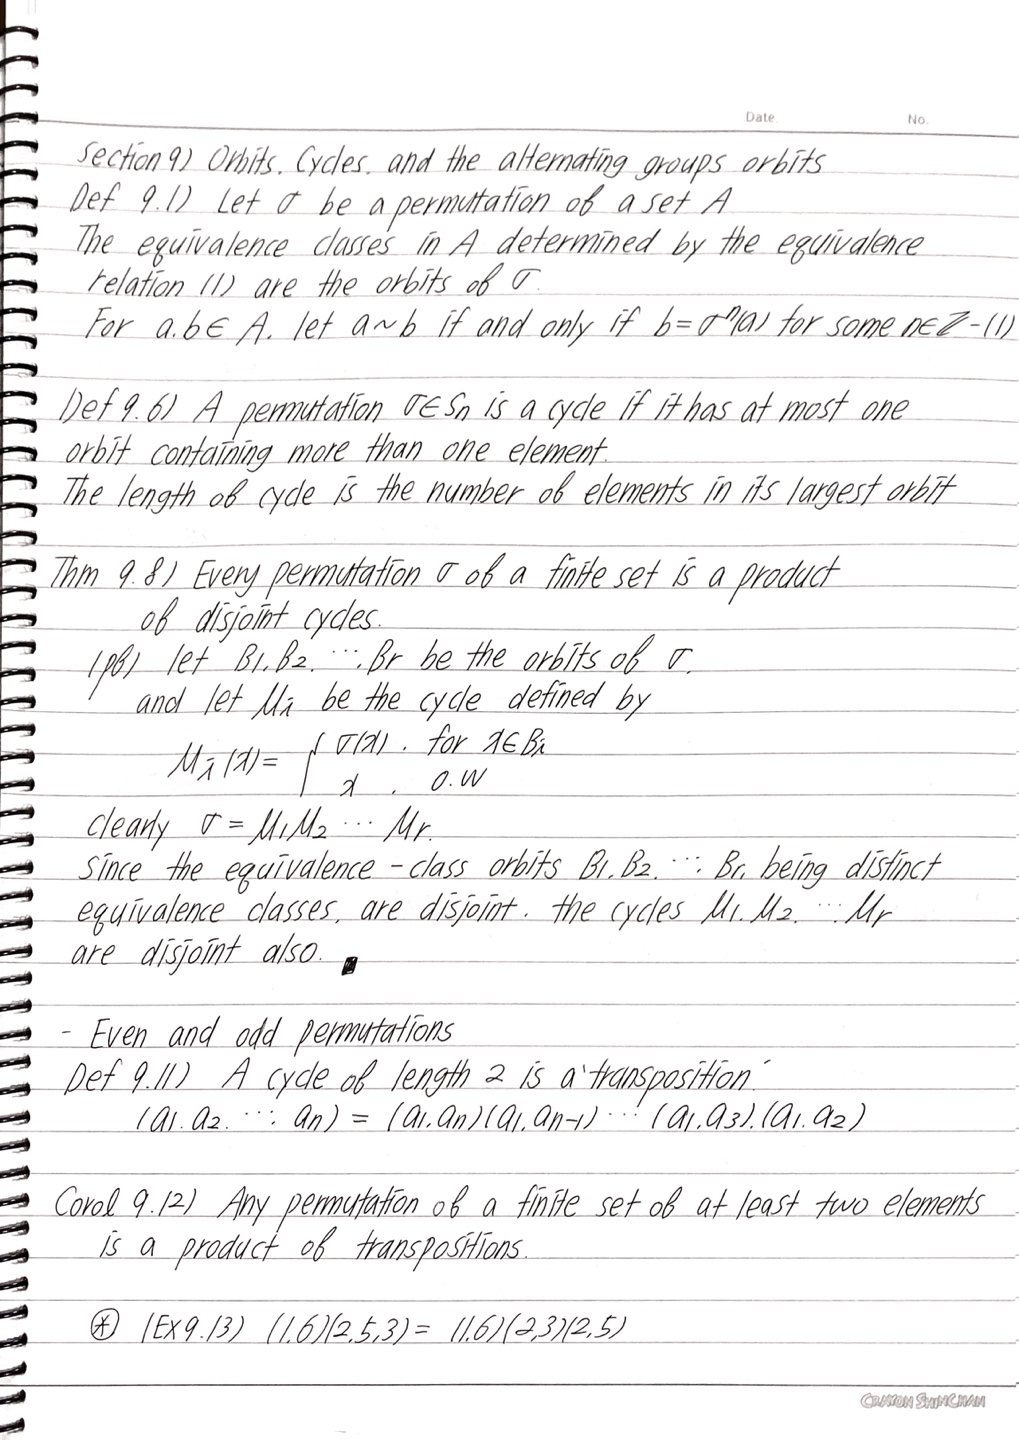 Date. No.
Section 9) Orbits, Cycles, and the alternating groups orbits
Def 9.1) Let σ be a permutation of a set A
The equivalence classes in A determined by the equivalence
relation (1) are the orbits of σ.
For a,b∈A, let a~b if and only if b=σⁿ(a) for some n∈ℤ -(1)
Def 9.6) A permutation σ∈Sn is a cycle if it has at most one
orbit containing more than one element.
The length of cycle is the number of elements in its largest orbit
Thm 9.8) Every permutation σ of a finite set is a product
of disjoint cycles.
(pf) let B1, B2, …, Br be the orbits of σ.
and let μi be the cycle defined by
μi(x) = { σ(x), for x∈Bi
x, o.w
clearly σ = μ1μ2 … μr.
Since the equivalence-class orbits B1, B2, …, Br, being distinct
equivalence classes, are disjoint. the cycles μ1, μ2, … μr
are disjoint also. ■
- Even and odd permutations
Def 9.11) A cycle of length 2 is a 'transposition.'
(a1, a2, …, an) = (a1,an)(a1,an-1) … (a1,a3),(a1,a2)
Corol 9.12) Any permutation of a finite set of at least two elements
is a product of transpositions.
⊛ (Ex 9.13) (1,6)(2,5,3) = (1,6)(2,3)(2,5)
CRAYON SHINCHAN